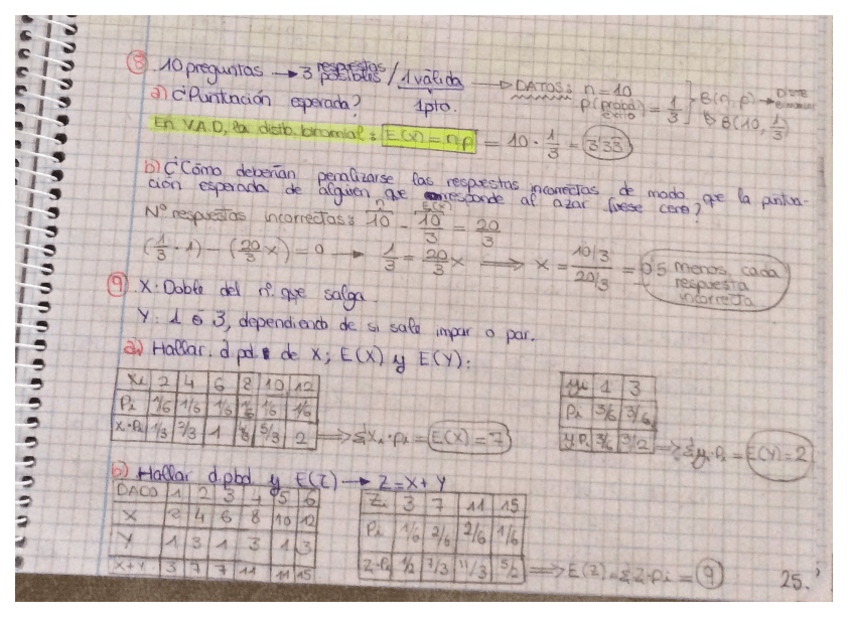 8) 10 preguntas → 3 respuestas posibles / 1 válida → DATOS: n = 10
1pto.
p(probab. éxito) = 1/3
B(n, p) →
B(10, 1/3)
a) ¿Puntación esperada?
En V.A.D, la distb. binomial: E(X) = n·p = 10 · 1/3 = 3'33
b) ¿Cómo deberían penalizarse las respuestas incorrectas de modo que la puntua-
ción esperada de alguien que responde al azar fuese cero?
Nº respuestas incorrectas: 10 - 10/3 = 20/3
(1/3 · 1) - (20/3 x) = 0 → 1/3 = 20/3 x ⟹ x = (10/3)/(20/3) = 0'5 menos cada respuesta incorrecta
9) X: Doble del nº. que salga.
Y: 1 ó 3, dependiendo de si sale impar o par.
a) Hallar d.pd. de X; E(X) y E(Y):
Xi 2 4 6 8 10 12
Pi 1/6 1/6 1/6 1/6 1/6 1/6
Xi·Pi 1/3 2/3 1 4/3 5/3 2 ⟹ Σxi·pi = E(X) = 7
yi 1 3
Pi 3/6 3/6
yi·Pi 3/6 3/2 ⟹ Σyi·Pi = E(Y) = 2
b) Hallar d.pbd y E(Z) → Z = X + Y
DADO 1 2 3 4 5 6
X 2 4 6 8 10 12
Y 1 3 1 3 1 3
X+Y 3 7 7 11 11 15
Zi 3 7 11 15
Pi 1/6 2/6 2/6 1/6
Z·Pi 1/2 7/3 11/3 5/2 ⟹ E(Z) = ΣZ·Pi = 9
25.